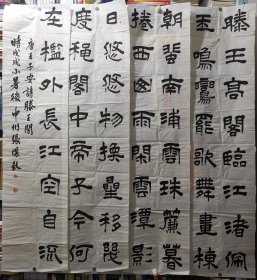 滕王高閣臨江渚佩
玉鳴鸞罷歌舞畫棟
朝蜚南浦雲珠簾暮
捲西山雨閒雲潭影
日悠悠物換曐移幾
度龝閣中帝子今何
在檻外長江空自流
唐王子安詩滕王閣
時戊戌小暑後中州張